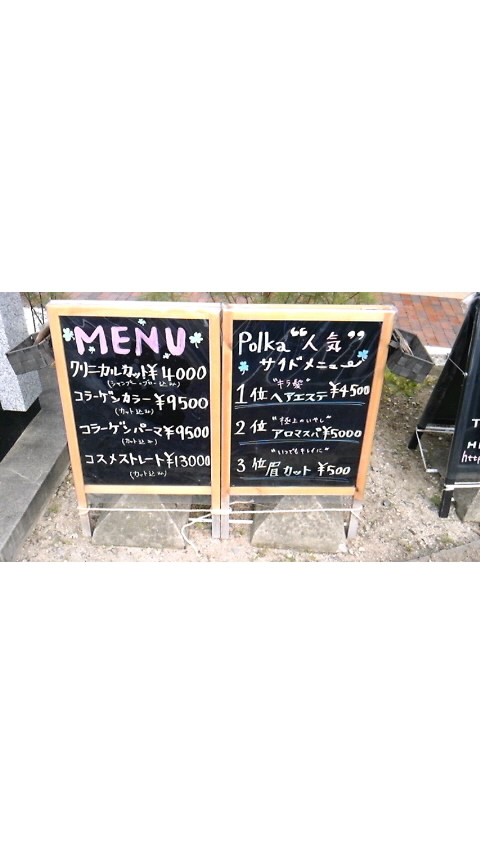 MENU
クリニカルカット¥4000
(シャンプー・ブロー込み)
コラーゲンカラー¥9500
(カット込み)
コラーゲンパーマ¥9500
(カット込み)
コスメストレート¥13000
(カット込み)
Polka "人気"
サイドメニュー
"キラ髪"
1位 ヘアエステ ¥4500
"極上のいやし"
2位 アロマスパ ¥5000
"いつでもキレイに"
3位 眉カット ¥500
T
H
http